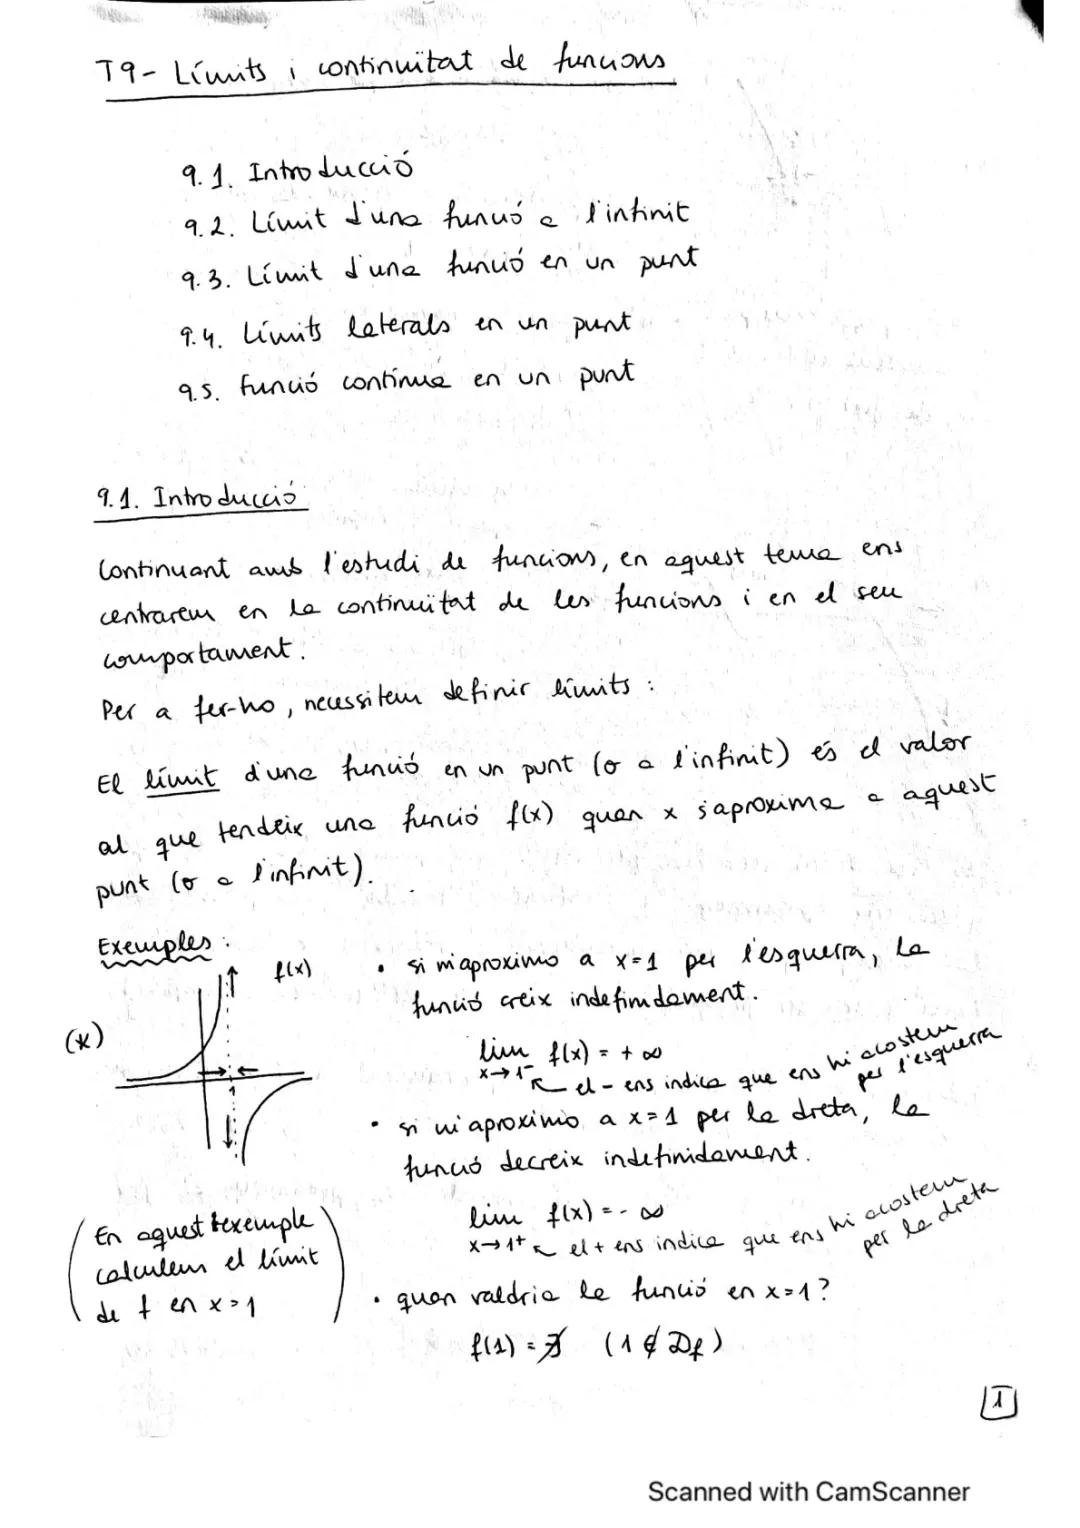 T9- Límits i continuïtat de funcions
9.1. Introducció
9.2. Límit d'una funció a l'infinit
9.3. Límit d'una funció en un punt
9.4. Límits laterals en un punt
9.5. funció contínua en un punt
9.1. Introducció
Continuant amb l'estudi de funcions, en aquest tema ens
centrarem en la continuïtat de les funcions i en el seu
comportament.
Per a fer-ho, necessitem definir límits :
El límit d'una funció en un punt (o a l'infinit) és el valor
al que tendeix una funció f(x) quan x s'aproxima a aquest
punt (o a l'infinit).
Exemples :
(*)
f(x)
1
• si m'aproximo a x=1 per l'esquerra, la
funció creix indefinidament.
lim f(x) = + ∞
x→1⁻ el - ens indica que ens hi acostem
per l'esquerra
• si m'aproximo a x=1 per la dreta, la
funció decreix indefinidament.
lim f(x) = - ∞
x→1⁺ el + ens indica que ens hi acostem
per la dreta
(En aquest exemple
calculem el límit
de f en x=1)
• quan valdria la funció en x=1?
f(1) = ∄ (1 ∉ Df)
1
Scanned with CamScanner